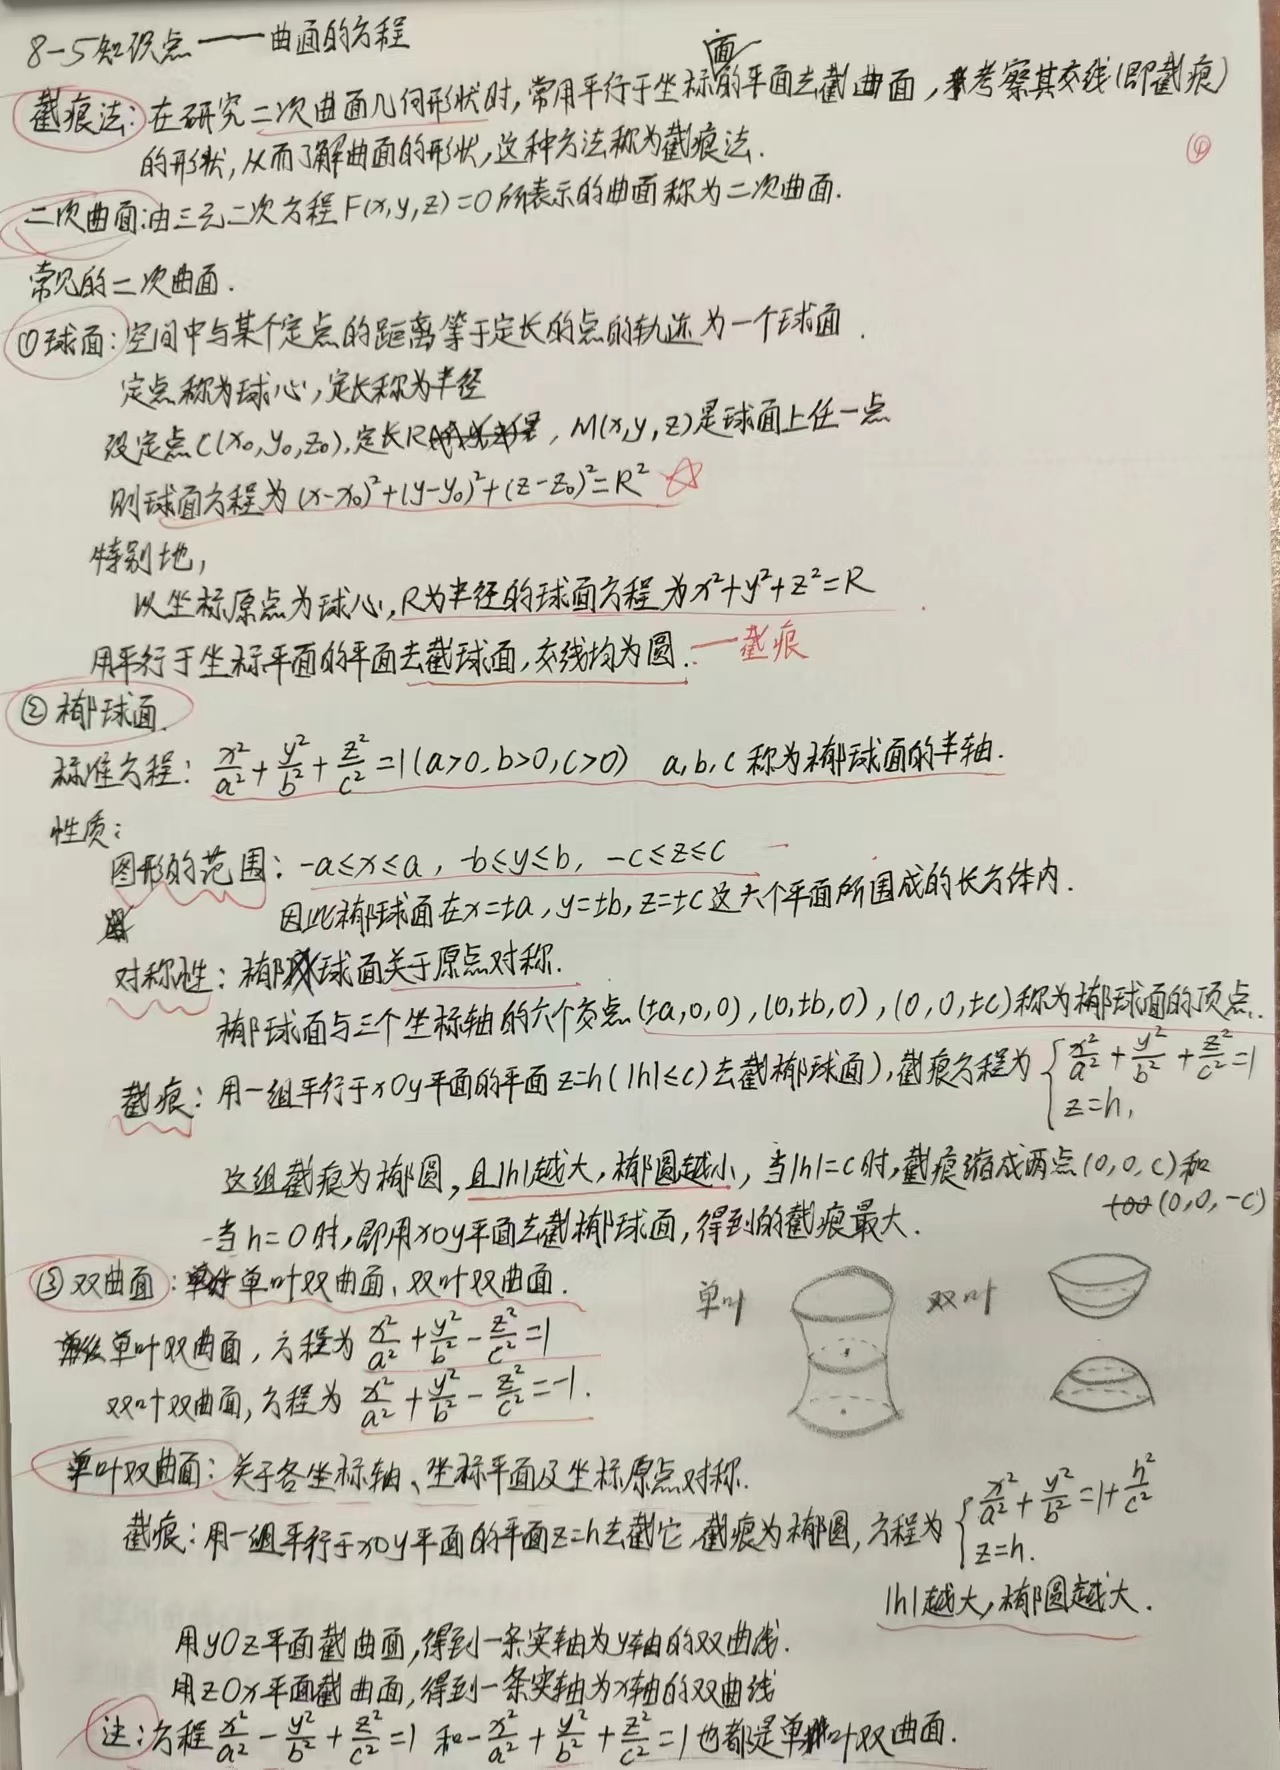 8-5知识点——曲面的方程
截痕法:在研究二次曲面几何形状时,常用平行于坐标面的平面去截曲面,来考察其交线(即截痕)
的形状,从而了解曲面的形状,这种方法称为截痕法.
④
二次曲面:由三元二次方程F(x,y,z)=0所表示的曲面称为二次曲面.
常见的二次曲面.
①球面:空间中与某个定点的距离等于定长的点的轨迹为一个球面.
定点称为球心,定长称为半径
设定点C(x₀,y₀,z₀),定长R,M(x,y,z)是球面上任一点
则球面方程为(x-x₀)²+(y-y₀)²+(z-z₀)²=R² ☆
特别地,
以坐标原点为球心,R为半径的球面方程为x²+y²+z²=R
用平行于坐标平面的平面去截球面,交线均为圆.—截痕
②椭球面.
标准方程:x²/a²+y²/b²+z²/c²=1(a>0,b>0,c>0) a,b,c称为椭球面的半轴.
性质:
图形的范围:-a≤x≤a,-b≤y≤b,-c≤z≤c
因此椭球面在x=±a,y=±b,z=±c这六个平面所围成的长方体内.
对称性:椭球面关于原点对称.
椭球面与三个坐标轴的六个交点(±a,0,0),(0,±b,0),(0,0,±c)称为椭球面的顶点.
截痕:用一组平行于xOy平面的平面z=h(|h|≤c)去截椭球面),截痕方程为{x²/a²+y²/b²+z²/c²=1
z=h,
这组截痕为椭圆,且|h|越大,椭圆越小,当|h|=c时,截痕缩成两点(0,0,c)和
(0,0,-c)
当h=0时,即用xOy平面去截椭球面,得到的截痕最大.
③双曲面:单叶双曲面、双叶双曲面.
单叶 双叶
单叶双曲面,方程为x²/a²+y²/b²-z²/c²=1
双叶双曲面,方程为x²/a²+y²/b²-z²/c²=-1.
单叶双曲面:关于各坐标轴、坐标平面及坐标原点对称.
截痕:用一组平行于xOy平面的平面z=h去截它,截痕为椭圆,方程为{x²/a²+y²/b²=1+h²/c²
z=h.
|h|越大,椭圆越大.
用yOz平面截曲面,得到一条实轴为y轴的双曲线.
用zOx平面截曲面,得到一条实轴为x轴的双曲线
注:方程x²/a²-y²/b²+z²/c²=1和-x²/a²+y²/b²+z²/c²=1也都是单叶双曲面.